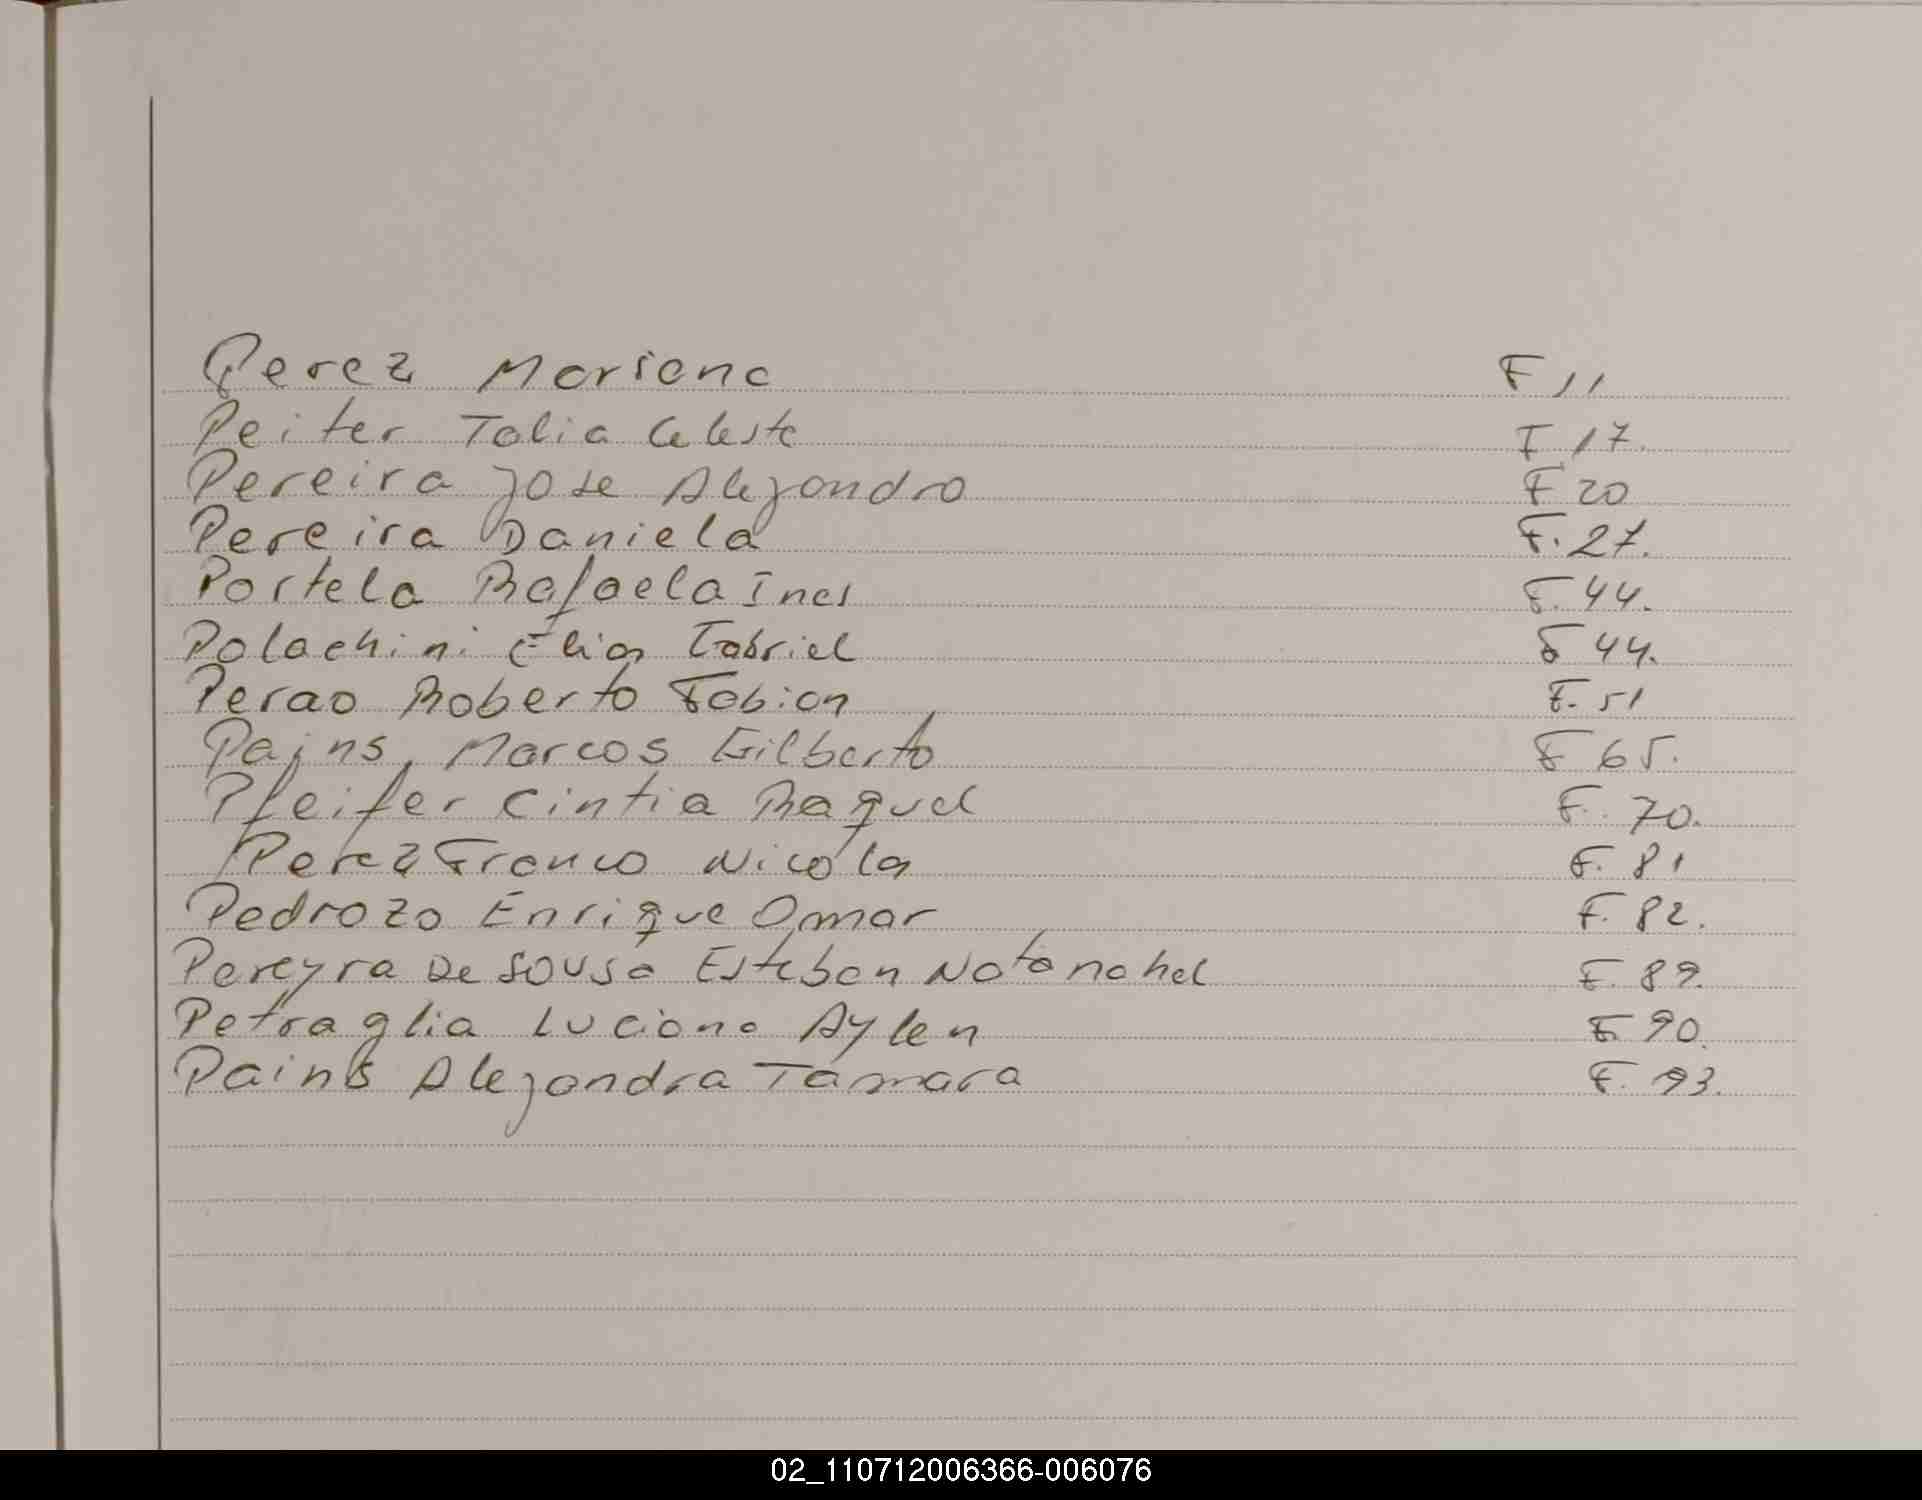 Perez Mariana F 11
Peiter Talia Celeste F 17.
Pereira Jose Alejandro F 20
Pereira Daniela F. 27.
Portela Rafaela Ines F. 44.
Polachini Elias Gabriel F 44.
Perao Roberto Fabian F. 51
Pains, Marcos Gilberto F 65.
Pfeifer Cintia Raquel F. 70.
Perez Franco Nicolas F. 81
Pedrozo Enrique Omar F. 82.
Pereyra De Sousa Esteban Natanahel F. 89.
Petraglia Luciana Aylen F. 90.
Pains Alejandra Tamara F. 93.
02_110712006366-006076